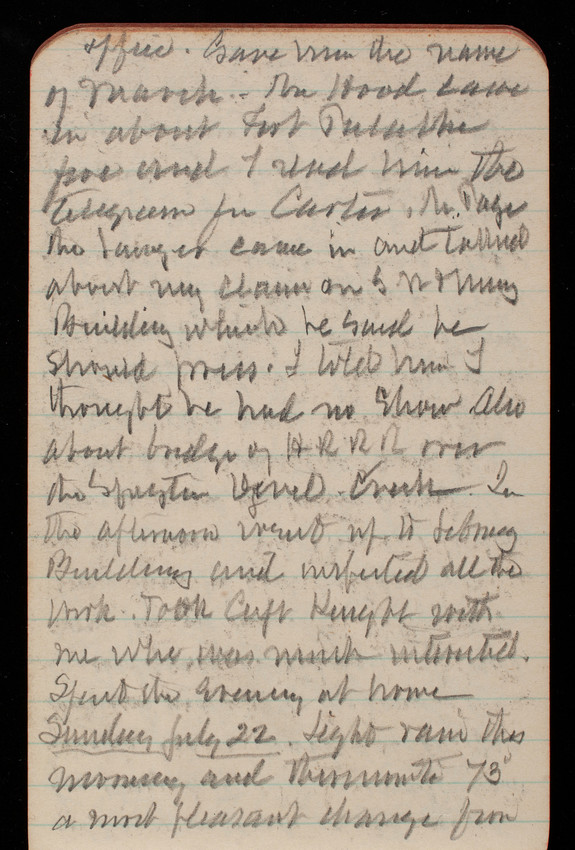 office. Gave him the name
of March. Mr Hood came
in about Fort Pulaski
and I read him the
telegram for Carter. Mr. Page
the lawyer came in and talked
about my claim on
Building which he said he
should press. I told him I
thought he had no show Also
about bridge of H R R R over
the Spuyten Dyvel Creek. In
the afternoon went up to Library
Building and inspected all the
work. Took Capt Knight with
me who was much interested.
Spent the Evening at home
Sunday July 22. Light rain this
morning and thermomete 73°
a most pleasant change from